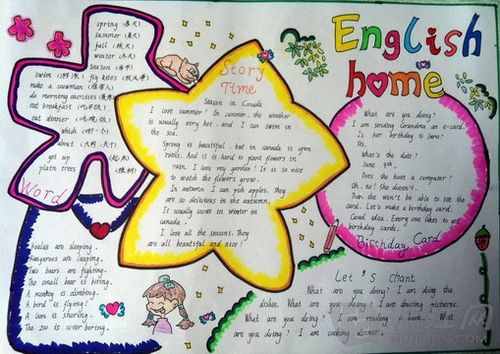 English
home
spring (春天)
summer (夏天)
fall (秋天)
winter (冬天)
Season (季节)
swim (游泳) fly kites (放风筝)
make a snowman (堆雪人)
do morning exercises (晨练)
eat breakfast (吃早饭)
eat dinner (吃晚饭)
which (哪一个)
about (大约)
get up (起床)
plain trees
Word
Story
Time
Season in Canada
I love summer! In summer, the weather
is usually very hot. and I can swim in
the sea.
Spring is beautiful, but in canada is upon
rains. And it is hard to plant flowers in
rain. I love my garden! It is so nice
to watch the flowers grow.
In autumn, I can pick apples. They
are so delicious in the autumn.
It usually snows in winter in
canada.
I love all the seasons. they
are all beautiful and nice!
What are you doing?
I am sending Grandma an e-card.
Is her birthday is June?
Yes.
What's the date?
June
Does she have a computer?
Oh, no! She doesn't.
Then she won't be able to see the
card. Let's make a birthday card.
Good idea. Every one likes to get
birthday cards.
Birthday Card
Koalas are sleeping.
Kangaroo are leaping.
Two bears are fighting.
The small bear is biting.
A monkey is climbing.
A bird is flying!
A lion is sharing.
The zoo is never boring.
Let's chant
What are you doing? I am doing the
dishes. What are you doing? I am drawing pictures.
What are you doing? I am reading a book. What
are you doing? I am cooking dinner.